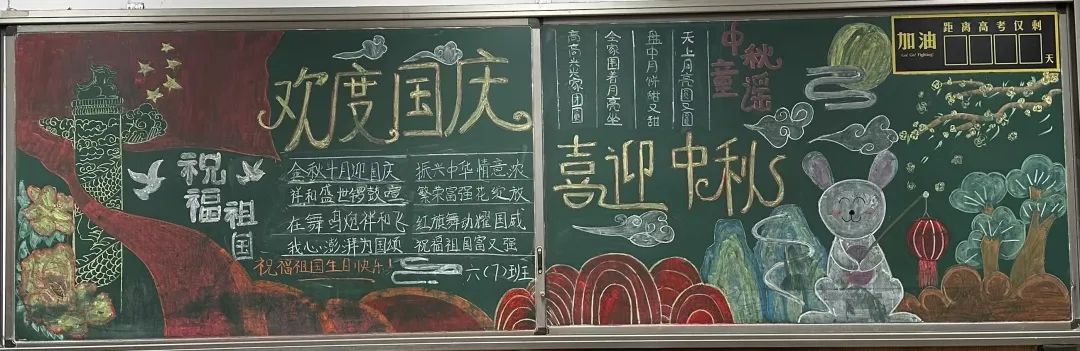 欢度国庆
祝福祖国
金秋十月迎国庆 振兴中华情意浓
祥和盛世锣鼓喧 繁荣富强花绽放
在舞鸟炮伴和飞 红旗舞动耀国威
我心澎湃为国颂 祝福祖国富又强
祝福祖国生日快乐!
六(7)班
中秋童谣
天上月亮圆又圆
盘中月饼甜又甜
全家围着月亮坐
高高兴兴家团圆
喜迎中秋
加油
Go! Go! Fighting!
距离高考仅剩
天